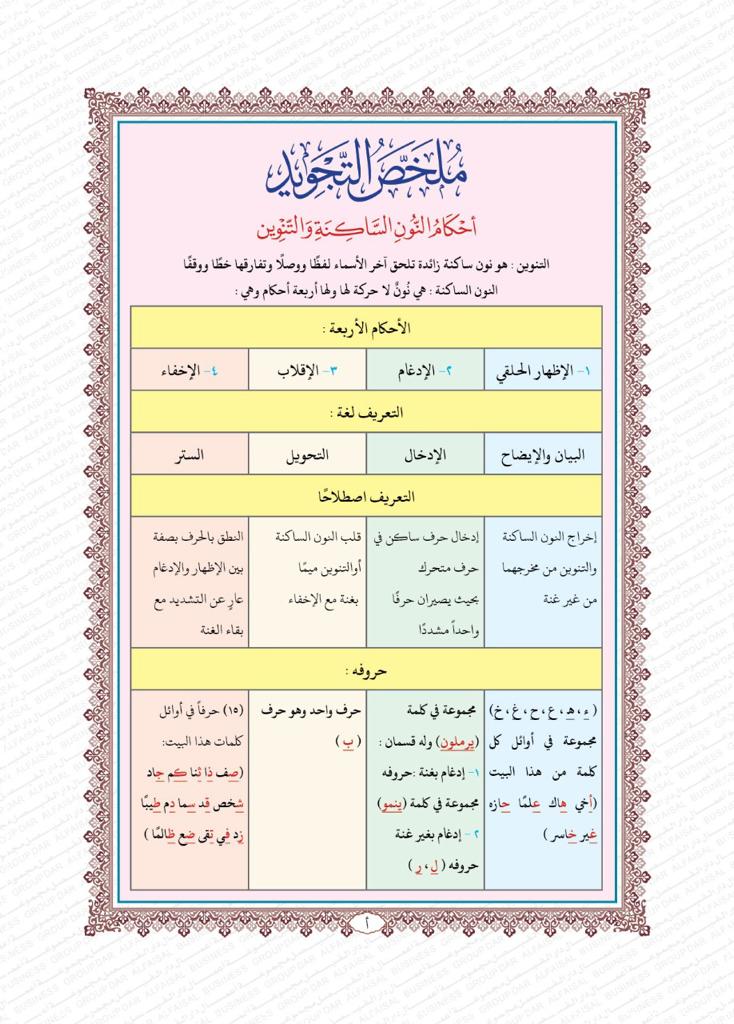 مُلَخَّصُ التَّجْوِيدِ
أَحْكَامُ النُّونِ السَّاكِنَةِ وَالتَّنْوِينِ
التنوين : هو نون ساكنة زائدة تلحق آخر الأسماء لفظًا ووصلًا وتفارقها خطًا ووقفًا
النون الساكنة : هي نُونٌ لا حركة لها ولها أربعة أحكام وهي :
الأحكام الأربعة :
١- الإظهار الحلقي
٢- الإدغام
٣- الإقلاب
٤- الإخفاء
التعريف لغة :
البيان والإيضاح
الإدخال
التحويل
الستر
التعريف اصطلاحًا
إخراج النون الساكنة
والتنوين من مخرجهما
من غير غنة
إدخال حرف ساكن في
حرف متحرك
بحيث يصيران حرفًا
واحداً مشددًا
قلب النون الساكنة
أوالتنوين ميمًا
بغنة مع الإخفاء
النطق بالحرف بصفة
بين الإظهار والإدغام
عارٍ عن التشديد مع
بقاء الغنة
حروفه :
(ء، هـ، ع، ح، غ، خ)
مجموعة في أوائل كل
كلمة من هذا البيت
(أخي هاك علمًا حازه
غير خاسر )
مجموعة في كلمة
(يرملون) وله قسمان :
١- إدغام بغنة :حروفه
مجموعة في كلمة (ينمو)
٢ - إدغام بغير غنة
حروفه ( ل، ر )
حرف واحد وهو حرف
( ب )
(١٥) حرفاً في أوائل
كلمات هذا البيت:
(صف ذا ثنا كم جاد
شخص قد سما دم طيبًا
زد في تقى ضع ظالمًا )
أ